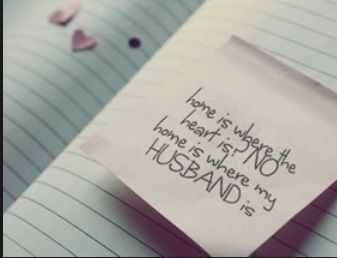 home is where the
heart is? NO
home is where my
HUSBAND is